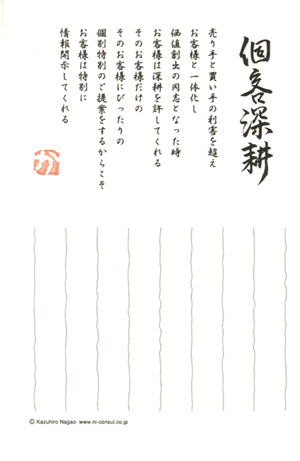 個客深耕
売り手と買い手の利害を超え
お客様と一体化し
価値創出の同志となった時
お客様は深耕を許してくれる
そのお客様だけの
そのお客様にぴったりの
個別特別のご提案をするからこそ
お客様は特別に
情報開示してくれる
か
© Kazuhiro Nagao www.ni-consul.co.jp